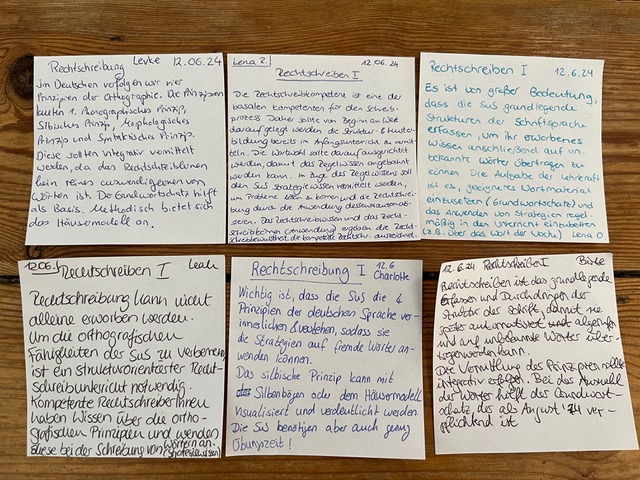 Rechtschreibung Levke 12.06.24
Im Deutschen verfolgen wir vier
Prinzipien der Orthographie. Die Prinzipien
lauten 1. Phonographisches Prinzip,
Silbisches Prinzip, Morphologisches
Prinzip und Syntaktisches Prinzip.
Diese sollten integrativ vermittelt
werden, da das Rechtschreiblernen
kein reines auswendiglernen von
Wörten ist. Der Grundwortschatz hilft
als Basis. Methodisch bietet sich
das Häusermodell an.
Lena Z. 12.06.24
Rechtschreiben I
Die Rechtschreibkompetenz ist eine der
basalen Kompetenzen für den Schreib-
prozess. Daher sollte von Beginn an Wert
darauf gelegt werden die Struktur- & Muster-
bildung bereits im Anfangsunterricht zu vermit-
teln. Die Wortwahl sollte darauf ausgerichtet
werden, damit das Regelwissen angebahnt
werden kann. In Zuge des Regelwissens soll
den SuS Strategiewissen vermittelt werden,
um Probleme lösen zu können und die Rechtschrei-
bung durch die Anwendung dessen
Das Rechtschreibwissen und das Recht-
schreibkönnen (Anwendung) ergeben die Recht-
schreibbewusstheit, die kompetente Rechtschr. auszeichnet.
Rechtschreiben I 12.6.24
Es ist von großer Bedeutung,
dass die SuS grundlegende
Strukturen der Schriftsprache
erfassen, um ihr erworbenes
Wissen anschließend auf un-
bekannte Wörter übertragen zu
können. Die Aufgabe der Lehrkraft
ist es, geeignetes Wortmaterial
einzusetzen (Grundwortschatz) und
das anwenden von Strategien regel-
mäßig in den Unterricht einzubetten
(z.B. über das Wort der Woche) Lena O.
12.06. Rechtschreiben I Leah
Rechtschreibung kann nicht
alleine erworben werden.
Um die orthografischen
Fähigkeiten der SuS zu verbessern
ist ein strukturorientierter Recht-
schreibunterricht notwendig.
Kompetente RechtschreiberInnen
haben Wissen über die ortho-
grafischen Prinzipien und wenden
diese bei der Schreibung von Wörtern an.
(Strategiewissen)
Rechtschreibung I 12.6
Charlotte
Wichtig ist, dass die SuS die 4
Prinzipien der deutschen Sprache ver-
innerlichen & verstehen, sodass sie
die Strategien auf fremde Wörter an-
wenden können.
Das silbische Prinzip kann mit
Silbenbögen oder dem Häusermodell
visualisiert und verdeutlicht werden.
Die SuS benötigen aber auch genug
Übungszeit!
12.6.24 Rechtschreiben I
Rechtschreiben ist das grundlegende
Erfassen und Durchdringen der
Struktur der Schrift, damit sie
später automatisiert abgerufen
und auf unbekannte Wörter über-
tragen werden kann.
Die Vermittlung des Prinzipien sollte
integrativ erfolgen. Bei der Auswahl
der Wörter hilft der Grundwort-
schatz, der ab August '24 ver-
pflichtend ist